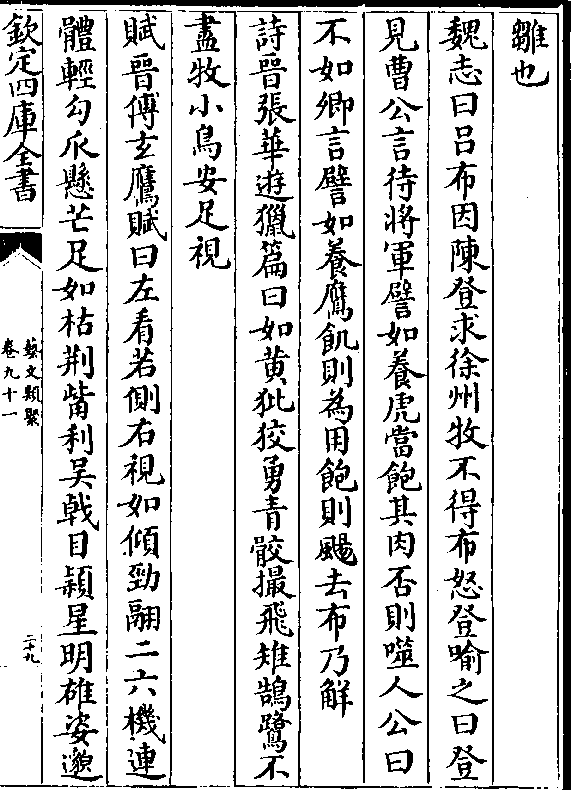 雛也
魏志曰呂布因陳登求徐州牧不得布怒登喻之曰登
見曹公言待將軍譬如養虎當飽其肉否則噬人公曰
不如卿言譬如養鷹飢則為用飽則颺去布乃解
詩晉張華遊獵篇曰如黄狴狡勇青骹撮飛雉鵠鷺不
盡牧小鳥安足視
賦晉傅玄鷹賦曰左看若側右視如傾勁翮二六機連
體輕勾爪懸芒足如枯荆觜利吳戟目頴星明雄姿邈
欽定四庫全書
藝文類聚
卷九十一
二十九